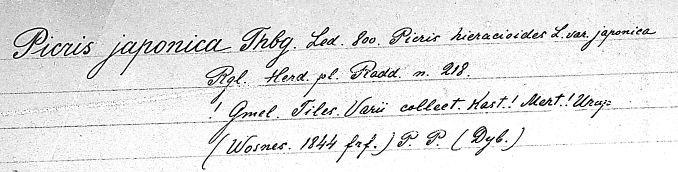 Picris japonica Thbg. Led. 800. Picris hieracioides L. var. japonica
Rgl. Herd. pl. Radd. n. 218.
! Gmel. Tiles. Varii collect. Kast.! Mert.!
(Wosnes. 1844 frf.) P. P. (Dyb.)